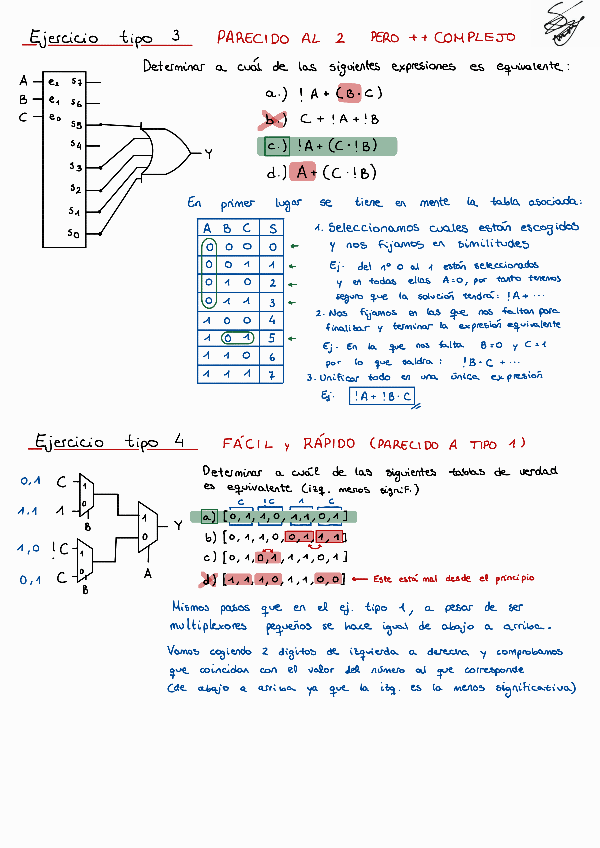 Ejercicio tipo 3 PARECIDO AL 2 PERO ++ COMPLEJO
Determinar a cuál de las siguientes expresiones es equivalente:
A e2 S7
B e1 S6
C e0 S5
S4
S3
S2
S1
S0
Y
a.) !A+(B·C)
b.) C + !A + !B
c.) !A+(C·!B)
d.) A+(C·!B)
En primer lugar se tiene en mente la tabla asociada:
A B C S
0 0 0 0
0 0 1 1
0 1 0 2
0 1 1 3
1 0 0 4
1 0 1 5
1 1 0 6
1 1 1 7
1. Seleccionamos cuales están escogidos
y nos fijamos en similitudes
Ej. del nº 0 al 1 están seleccionados
y en todas ellas A=0, por tanto tenemos
seguro que la solución tendrá: !A+...
2. Nos fijamos en las que nos faltan para
finalizar y terminar la expresión equivalente
Ej. En la que nos falta B=0 y C=1
por lo que saldrá: !B·C+...
3. Unificar todo en una única expresión
Ej. !A+!B·C
Ejercicio tipo 4 FÁCIL y RÁPIDO (PARECIDO A TIPO 1)
Determinar a cuál de las siguientes tablas de verdad
es equivalente (izq. menos signif.)
0,1 C 1
1,1 1 0
B
1,0 !C 1
0,1 C 0
B
1
0
A
Y
C !C 1 C
a) [0,1,1,0,1,1,0,1]
b) [0,1,1,0,0,1,1,1]
c) [0,1,0,1,1,0,1,1]
d) [1,1,1,0,1,1,0,0] ← Este está mal desde el principio
Mismos pasos que en el ej. tipo 1, a pesar de ser
multiplexores pequeños se hace igual de abajo a arriba.
Vamos cogiendo 2 dígitos de izquierda a derecha y comprobamos
que coincidan con el valor del número al que corresponde
(de abajo a arriba ya que la izq. es la menos significativa)